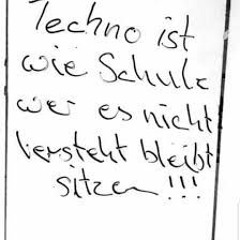 Techno ist
wie Schule
wer es nicht
versteht bleibt
sitzen !!!